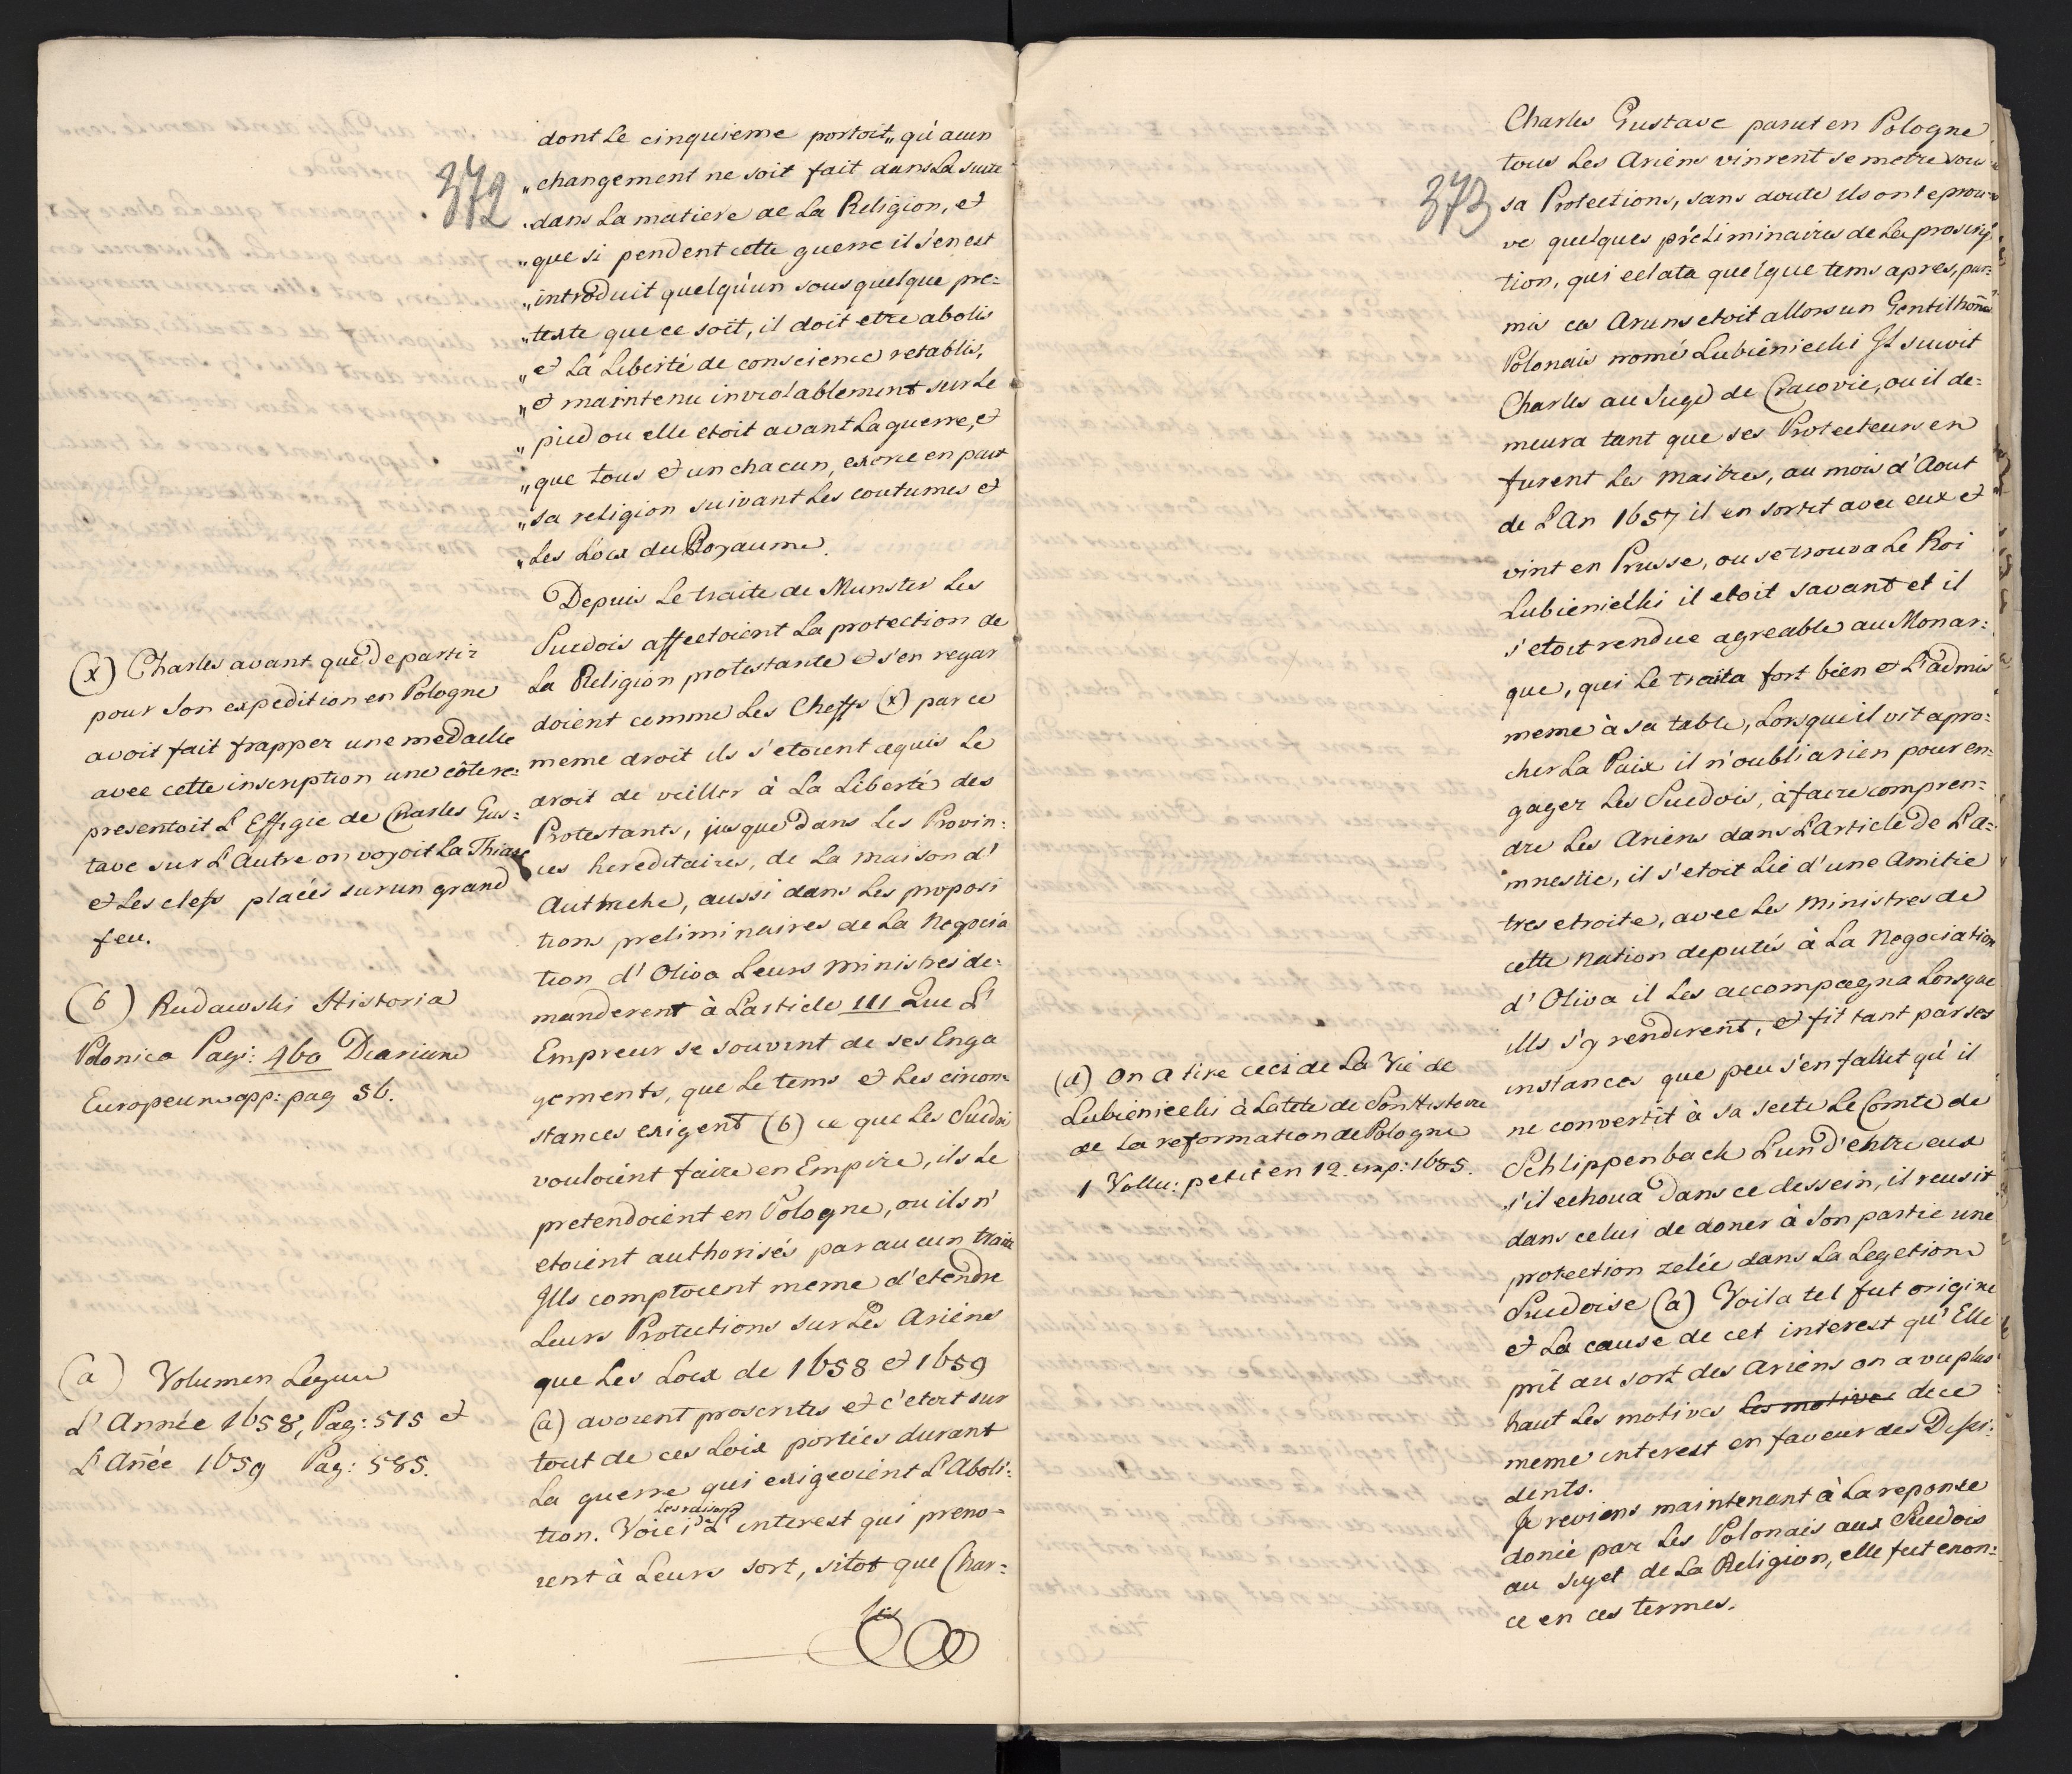 372
dont Le cinquieme portoit „ qu'aucun
„ changement ne soit fait dans La suite
„ dans La matiere de La Religion, et
„ que si pendent cette guerre il s'en est
„ introduit quelqu'un sous quelque pre=
„ texte que ce soit, il doit etre abolis
„ et La Liberté de conscience retablis,
„ et maintenu inviolablement sur Le
„ pied ou elle etoit avant La guerre, et
„ que tous et un chacun, exerce en paix
„ sa religion suivant Les coutumes et
„ Les Loix du Royaume.
Depuis Le traite de Munster Les
Suedois affectoient La protection de
La Religion protestante et s'en regar
doient comme Les Cheffs (x) par ce
meme droit ils s'etoient aquis Le
droit de veiller à La Liberté des
Protestants, jusque dans Les Provin=
ces hereditaires, de La maison d'
Autriche, aussi dans Les proposi
tions preliminaires de La Negocia
tion d'Oliva Leurs Ministres de=
manderent à L'article III Que L'
Empreur se souvint de ses Enga
gements, que Le tems et Les circon
stances exigent (b) ce que Les Suedoi
vouloient faire en Empire, ils Le
pretendoient en Pologne, ou ils n'
etoient authorisés par aucun traite
Ills comptoient meme d'etendre
Leurs Protections sur Les Ariens
que Les Loix de 1658 et 1659
(a) avoient proscrites et c'etoit sur
tout de ces Loix portées durant
La guerre qui exigeoient L'Aboli=
tion. Voici Les raisons de L'interest qui preno=
rent à Leurs sort, sitot que Char=
les
(x) Charles avant que de partir
pour Son expedition en Pologne
avoit fait frapper une medaille
avec cette inscription une côte re=
presentoit L'Effigie de Charles Gus=
tave sur L'Autre on voyoit La Thiare
et Les clefs placés sur un grand
feu.
(b) Rudawski Historia
Polonica Pag: 460 Diarium
Europeum app: pag 56.
(a) Volumen Legum
L'Année 1658, Pag: 515 et
L'Añée 1659 Pag: 585.
373
Charles Gustave parut en Pologne
tous Les Ariens vinrent se metre sous
sa Protections, sans doute ils ont eprou=
ve quelques préliminaires de La proscrip
tion, qui eclata quelque tems apres, par=
mis ces Ariens etoit allors un Gentilhõme
Polonais nomé Lubieniecki Il suivit
Charles au Siege de Cracovie, ou il de=
meura tant que ses Protecteurs en
furent Les maitres, au mois d'Aout
de L'An 1657 il en sortit avec eux et
vint en Prusse, ou se trouva Le Roi
Lubieniecki il etoit savant et il
s'etoit rendue agreable au Monar=
que, qui Le traita fort bien et L'admis
meme à sa table, Lorsqueil vit apro=
cher La Paix il n'oublia rien pour en=
gager Les Suedois, à faire compren=
dre Les Ariens dans L'Article de L'a=
mnestie, il s'etoit Lié d'une Amitie
tres etroite, avec Les Ministres de
cette Nation deputés à La Nogociation
d'Oliva il Les accompagna Lorsque
ills s'y rendirent, et fit tant par ses
instances que peu s'en fallut qu'il
ne convertit à sa secte Le Comte de
Schlippenbach L'un d'entre eux
s'il echoua dans ce dessein, il reusit
dans celui de doner à Son partie une
protection zelée dans La Legetion
Suedoise (a) Voila tel fut origine
et La cause de cet interest qu'Elle
prit au sort des Ariens on a vu plus
haut Les motives Les motives de ce
meme interest en faveur des Dissi=
dents.
Je reviens maintenant à La reponse
donée par Les Polonais aux Suedois
au sujet de La Religion, elle fut enon=
ce en ces termes.
(a) On a tire ceci de La Vie de
Lubieniecki à La tete de Son Histoire
de La reformation de Pologne
1 Vollu: petit en 12. imp: 1685.